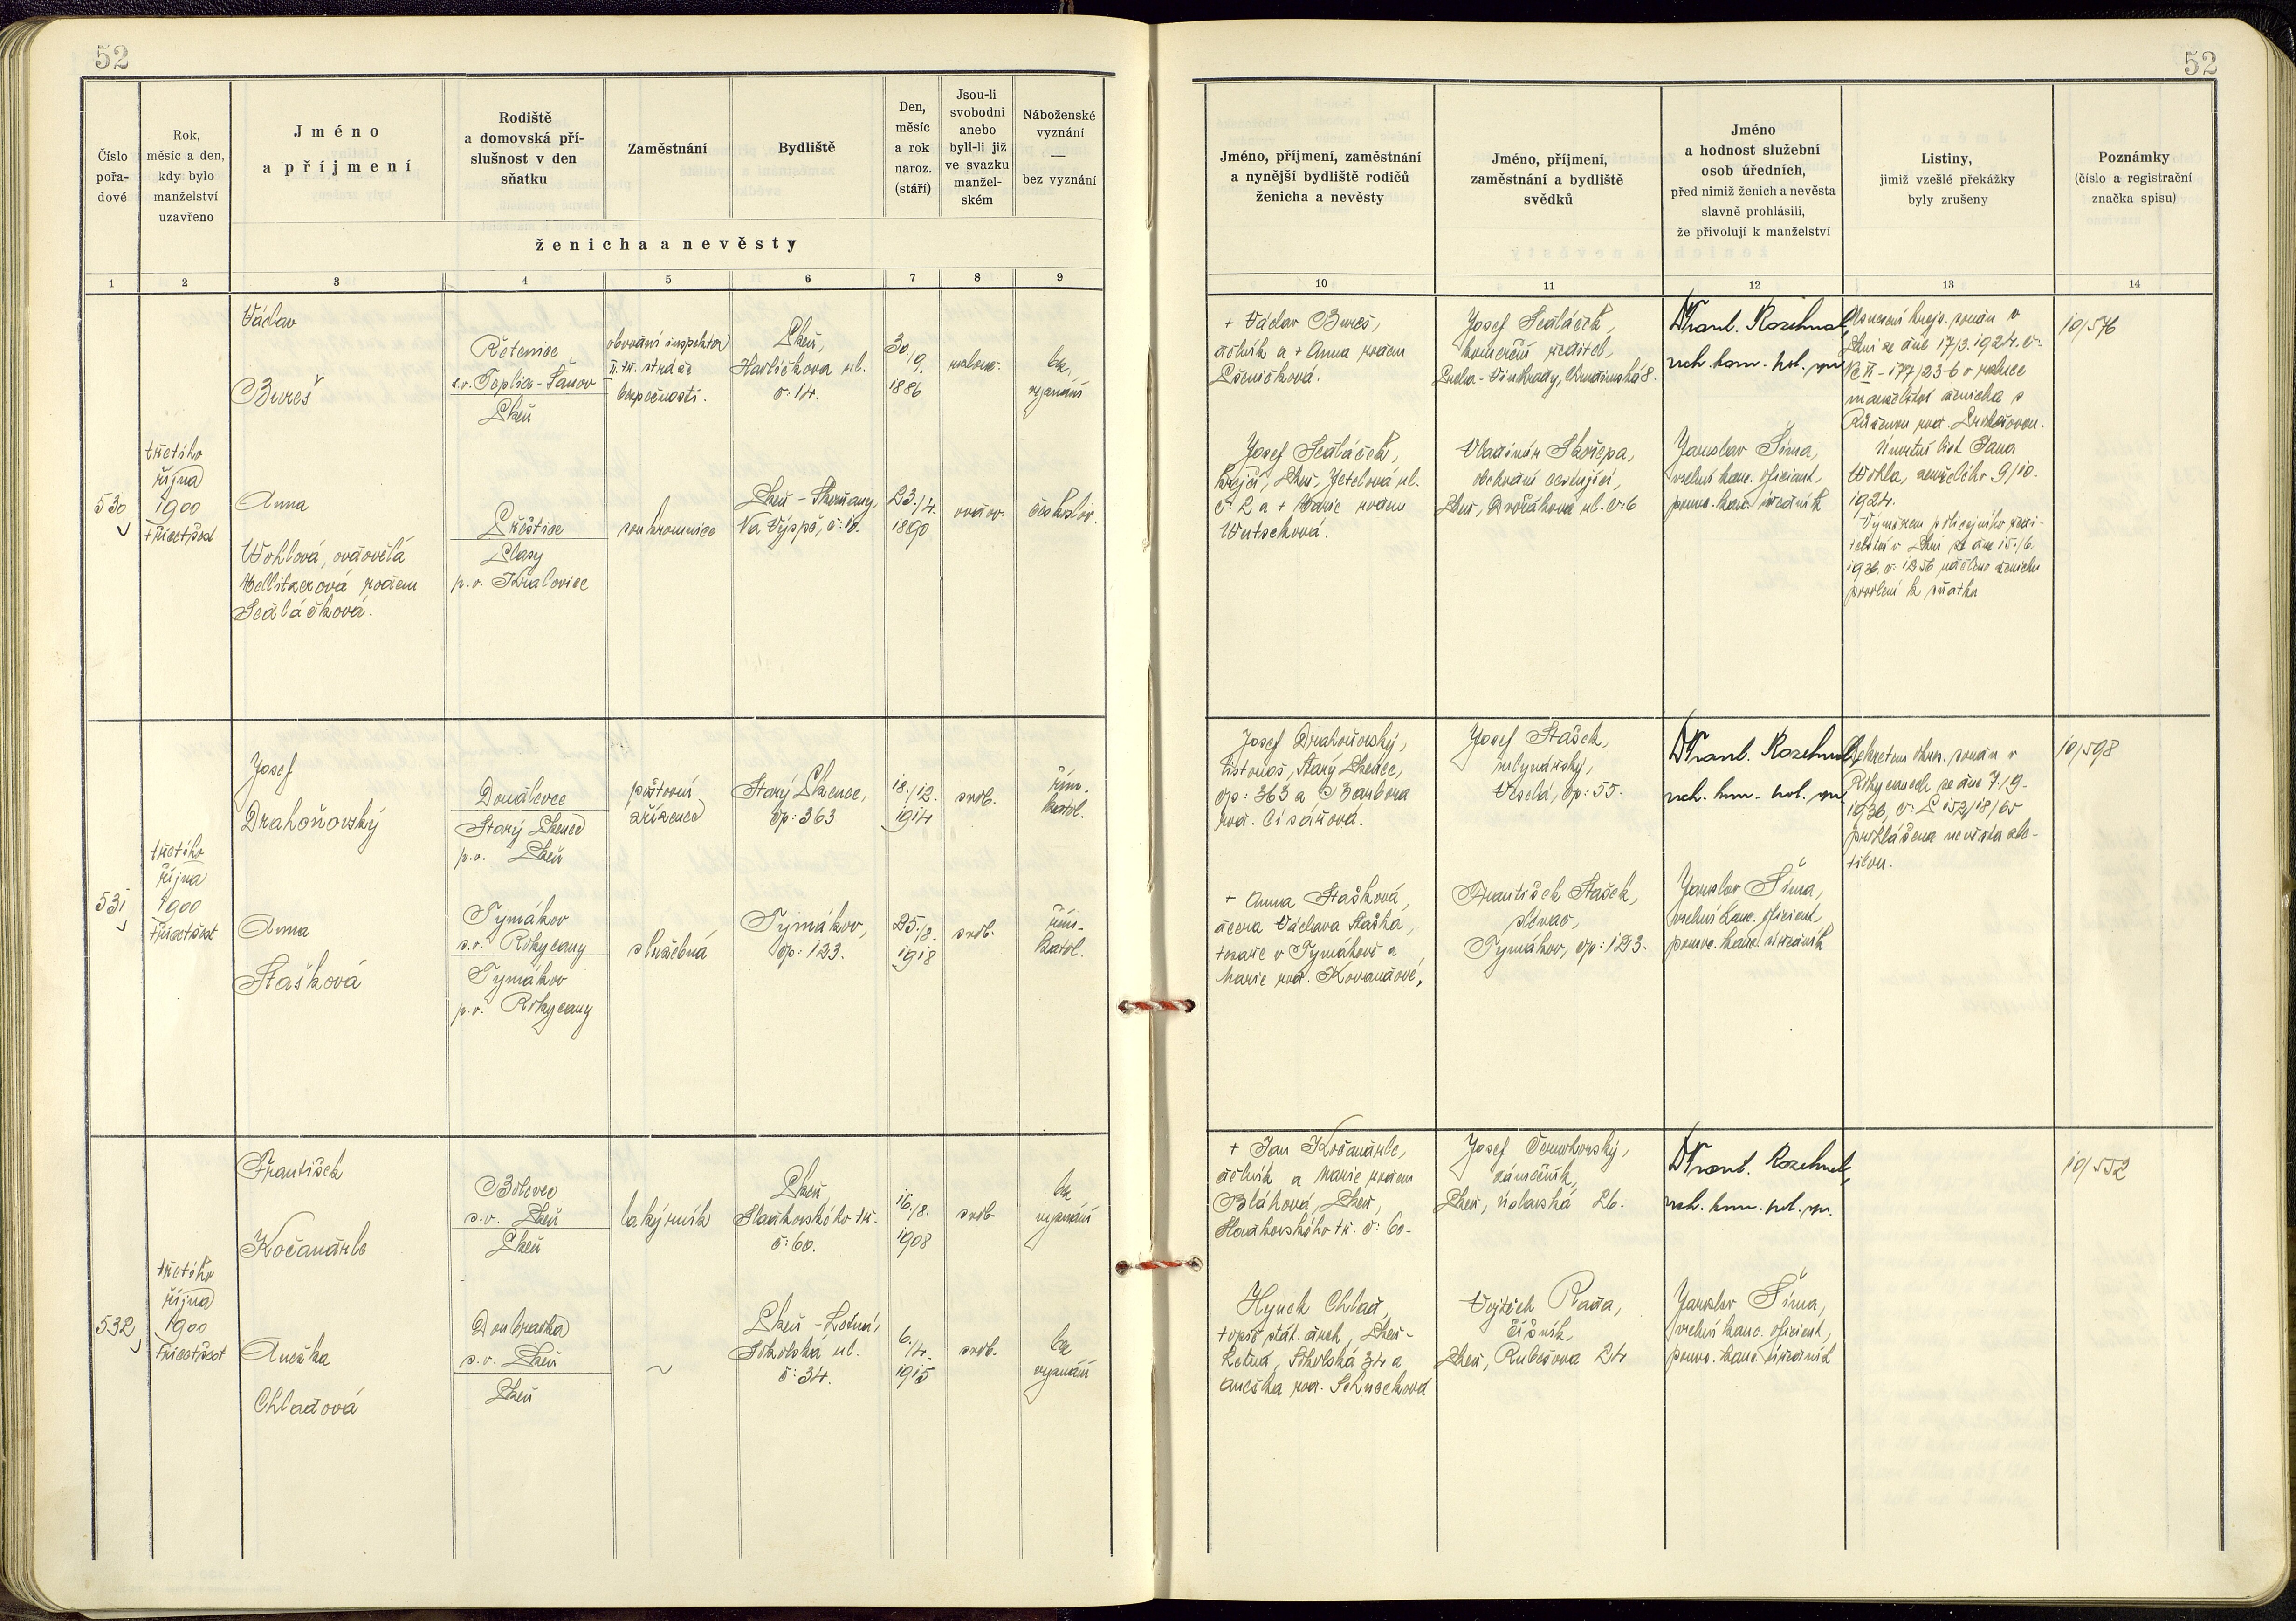 52
52
Číslo
pořa-
dové
Rok,
měsíc a den,
kdy bylo
manželství
uzavřeno
Jméno
a příjmení
Rodiště
a domovská pří-
slušnost v den
sňatku
Zaměstnání
Bydliště
Den,
měsíc
a rok
naroz.
(stáří)
Jsou-li
svobodni
anebo
byli-li již
ve svazku
manžel-
ském
Náboženské
vyznání
—
bez vyznání
ženicha a nevěsty
Jméno, příjmení, zaměstnání
a nynější bydliště rodičů
ženicha a nevěsty
Jméno, příjmení,
zaměstnání a bydliště
svědků
Jméno
a hodnost služební
osob úředních,
před nimiž ženich a nevěsta
slavně prohlásili,
že přivolují k manželství
Listiny,
jimiž vzešlé překážky
byly zrušeny
Poznámky
(číslo a registrační
značka spisu)
1 2 3 4 5 6 7 8 9
10 11 12 13 14
530
třetího
října
1900
třicetšest
Václav
Bureš
Řetenice
s.o. Teplice-Šanov
Plzeň
obvodní inspektor
II. tř. stráže
bezpečnosti.
Plzeň,
Havlíčkova ul.
č: 14.
30./9.
1886
rozlouč.
bez
vyznání
Anna
Wohlová, ovdovělá
rodem
Sedláčková.
Přeštice
Plasy
p.o. Kralovice
soukromnice
Plzeň - Skvrňany,
Na Výspě, č: 10.
23./4.
1890
ovdov.
českoslov.
+ Václav Bureš,
dělník a + Anna rodem
Pšeničková.
Josef Sedláček,
krejčí, Plzeň, Jetelová ul.
č: 2 a + Marie rodem
Josef Sedláček,
komerční ředitel,
Praha-Vinohrady, Chrudimská 8.
Vladimír Skořepa,
obchodní cestující,
Plzeň, Dvořákova ul. č: 6
Dr Frant. Rozehnal,
vrch. kom. pol. spr.
Jaroslav Šíma,
vrchní kanc. oficiant,
pomoc. kanc. úředník
Usnesení krajs. soudu v
Plzni ze dne 17/3. 1924. č-
Nc VI - 177/23-6 o rozluce
manželství ženicha s
Růženou roz.
Úmrtní list Jana
Wohla, zemřelého 9/10.
1924.
Výměrem policejního ředi-
telství v Plzni ze dne 15./6.
1936. č: 1256 uděleno ženichu
povolení k sňatku
10/576
531
třetího
října
1900
třicetšest
Josef
Drahoňovský
Doudlevce
Starý Plzenec
p.o. Plzeň
poštovní
zřízenec
Starý Plzenec,
čp: 363
18./12.
1914
svob.
řím.-
katol.
Anna
Stašková
Tymákov
s.o. Rokycany
Tymákov
p.o. Rokycany
služebná
Tymákov,
čp: 123.
25./8.
1918
svob.
řím.-
katol.
Josef Drahoňovský,
listonoš, Starý Plzenec,
čp: 363 a Barbora
roz. Císařová.
+ Anna Stašková,
dcera Václava Staška,
tesaře v Tymákově a
Marie roz. Kovandové.
Josef Stašek,
mlynářský,
čp: 55.
František Stašek,
slévač,
Tymákov, čp: 123.
Dr Frant. Rozehnal,
vrch. kom. pol. spr.
Jaroslav Šíma,
vrchní kanc. oficiant,
pomoc. kanc. úředník
Dekretem okres. soudu v
Rokycanech ze dne 7./9.
1936, č: P 152/18/65
prohlášena nevěsta zle-
tilou.
10/598
532
třetího
října
1900
třicetšest
František
Kočandrle
Bolevec
s.o. Plzeň
Plzeň
lakýrník
Plzeň,
Slavkovského tř.
č: 60.
16./8.
1908
svob.
bez
vyznání
Anežka
Chladová
Doubravka
s.o. Plzeň
Plzeň
~
Plzeň - Letná,
Sokolská ul.
č: 34.
6./4.
1915
svob.
bez
vyznání
+ Jan Kočandrle,
dělník a Marie rodem
Bláhová, Plzeň,
Slavkovského tř. č: 60.
Hynek Chlad,
topič stát. drah, Plzeň-
Letná, Sokolská 34 a
Anežka roz.
Josef Černohorský,
zámečník,
Plzeň, Úslavská 26.
Vojtěch Rada,
číšník,
Plzeň, Rubešova 24
Dr Frant. Rozehnal,
vrch. kom. pol. spr.
Jaroslav Šíma,
vrchní kanc. oficiant,
pomoc. kanc. úředník
10/552